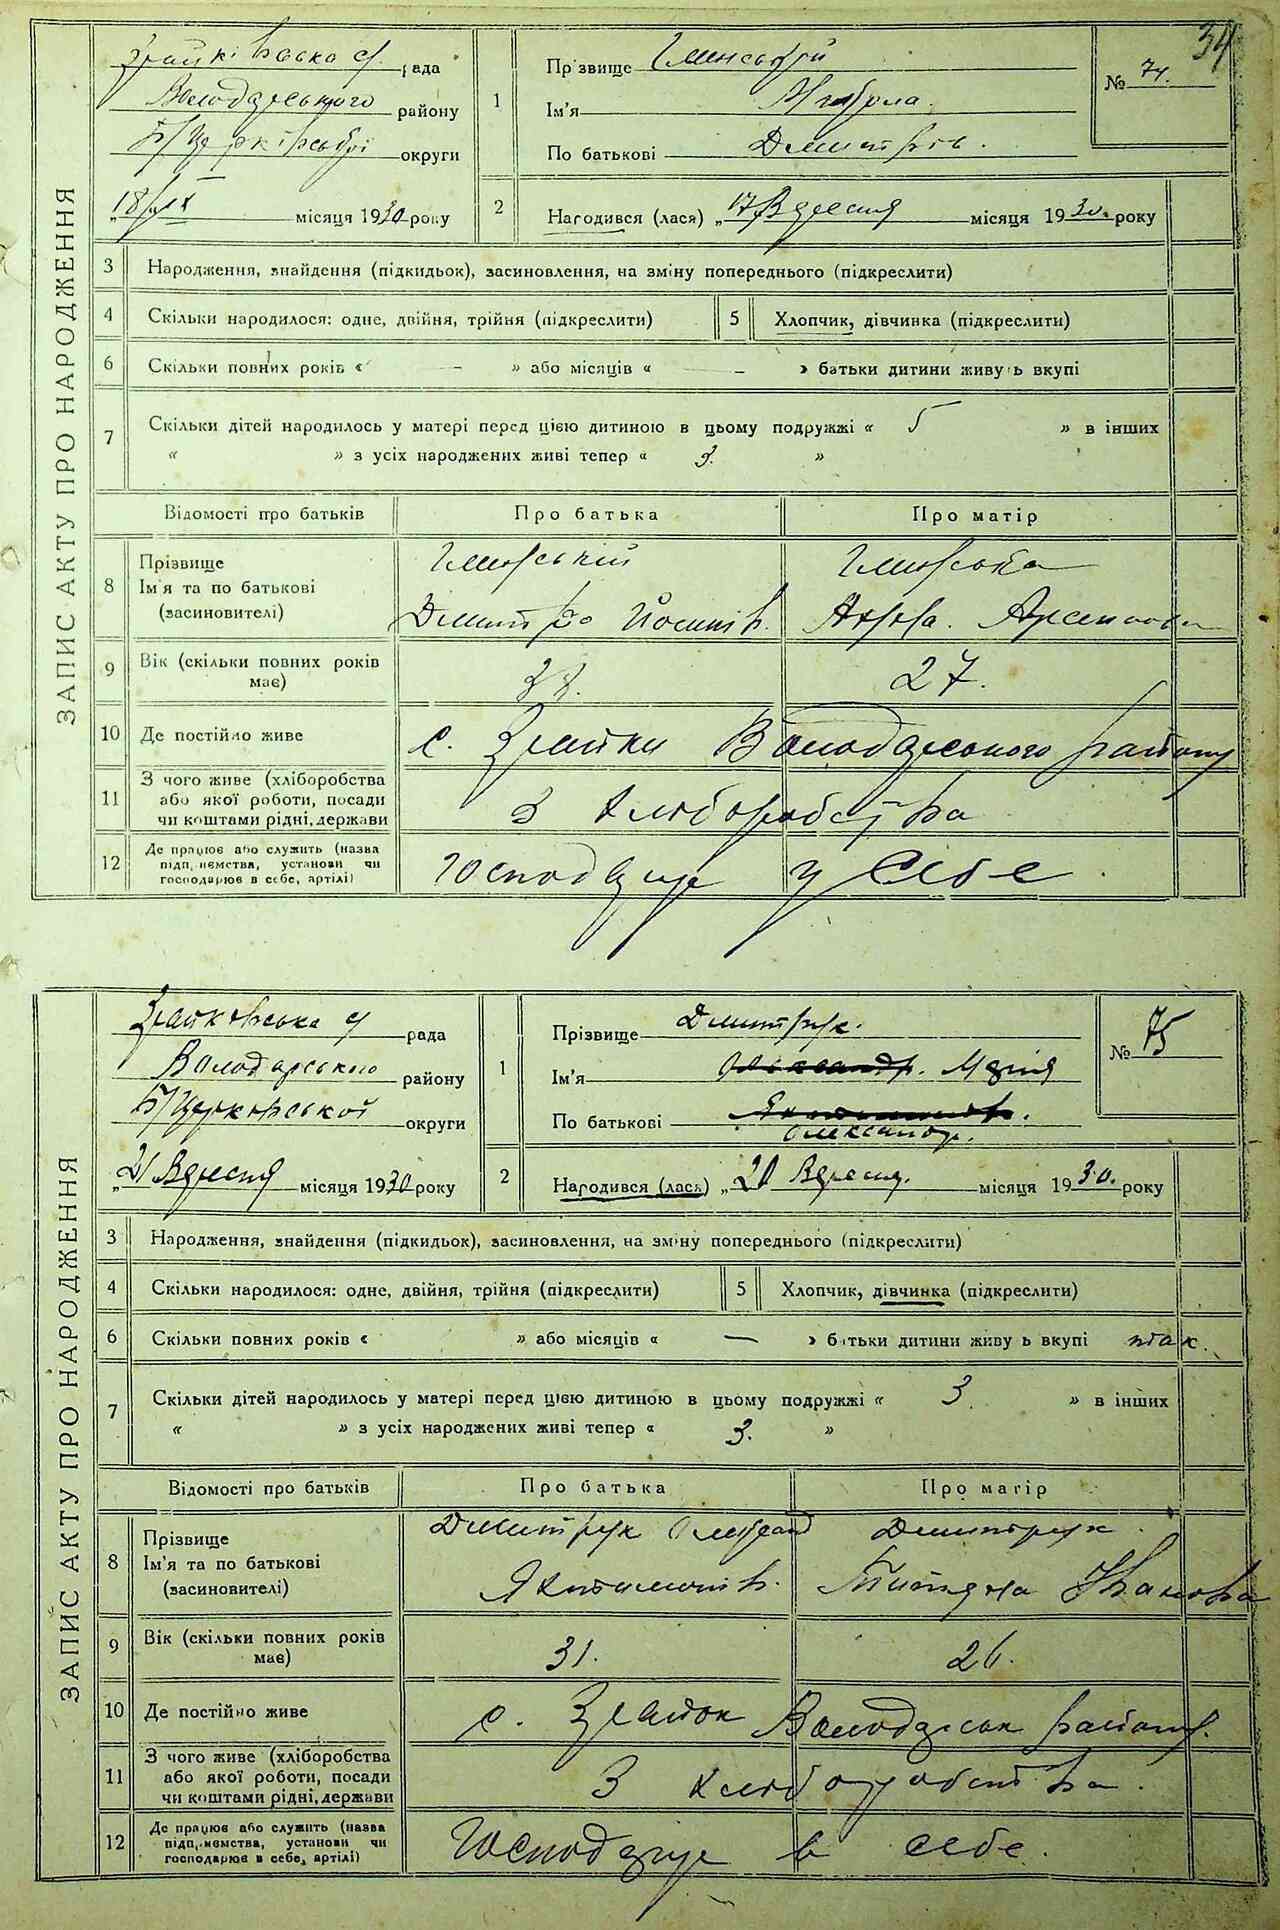 34
ЗАПИС АКТУ ПРО НАРОДЖЕННЯ
рада
Володарського району
Б/Церківської округи
18/IX місяця 1930 року
1
Прізвище
Ім'я Микола.
По батькові Дмитрів.
№ 74.
2
Народився (лася) „17 Вересня місяця 1930. року
3 Народження, знайдення (підкидьок), засиновлення, на зміну попереднього (підкреслити)
4 Скільки народилося: одне, двійня, трійня (підкреслити) 5 Хлопчик, дівчинка (підкреслити)
6 Скільки повних років « – » або місяців « – » батьки дитини живуть вкупі
7 Скільки дітей народилось у матері перед цією дитиною в цьому подружжі « 5 » в інших
« » з усіх народжених живі тепер « 3. »
Відомості про батьків Про батька Про матір
8 Прізвище
Ім'я та по батькові
(засиновителі)
Дмитро Йосипів. Анна. Арсенова
9 Вік (скільки повних років має) 27.
10 Де постійно живе с. Зрайки Володарського району
11 З чого живе (хліборобства або якої роботи, посади чи коштами рідні, держави З хліборобства
12 Де працює або служить (назва підприємства, установи чи господарює в себе, артілі) господарює у себе.
ЗАПИС АКТУ ПРО НАРОДЖЕННЯ
Зрайківська с/ рада
Володарського району
Б/Церківської округи
„21 Вересня місяця 1930 року
1
Прізвище Дмитрук.
Ім'я Марія
По батькові
Олександр.
№ 75
2
Народився (лася) „20 Вересня. місяця 1930. року
3 Народження, знайдення (підкидьок), засиновлення, на зміну попереднього (підкреслити)
4 Скільки народилося: одне, двійня, трійня (підкреслити) 5 Хлопчик, дівчинка (підкреслити)
6 Скільки повних років « » або місяців « — » батьки дитини живуть вкупі так.
7 Скільки дітей народилось у матері перед цією дитиною в цьому подружжі « 3. » в інших
« » з усіх народжених живі тепер « 3. »
Відомості про батьків Про батька Про матір
8 Прізвище
Ім'я та по батькові
(засиновителі)
Дмитрук Дмитрук.
Іванова
9 Вік (скільки повних років має) 31. 26.
10 Де постійно живе с. Зрайок Володарськ району.
11 З чого живе (хліборобства або якої роботи, посади чи коштами рідні, держави З хліборобства.
12 Де працює або служить (назва підприємства, установи чи господарює в себе, артілі) Господарює в себе.